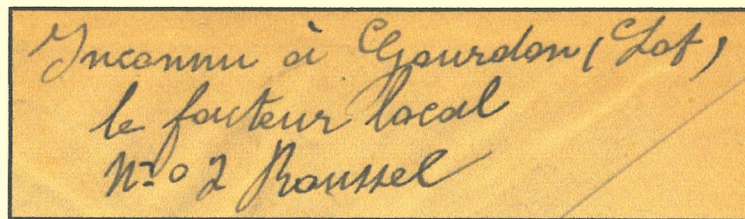 Inconnu à Gourdon (Lot)
le facteur local
N° 2 Roussel